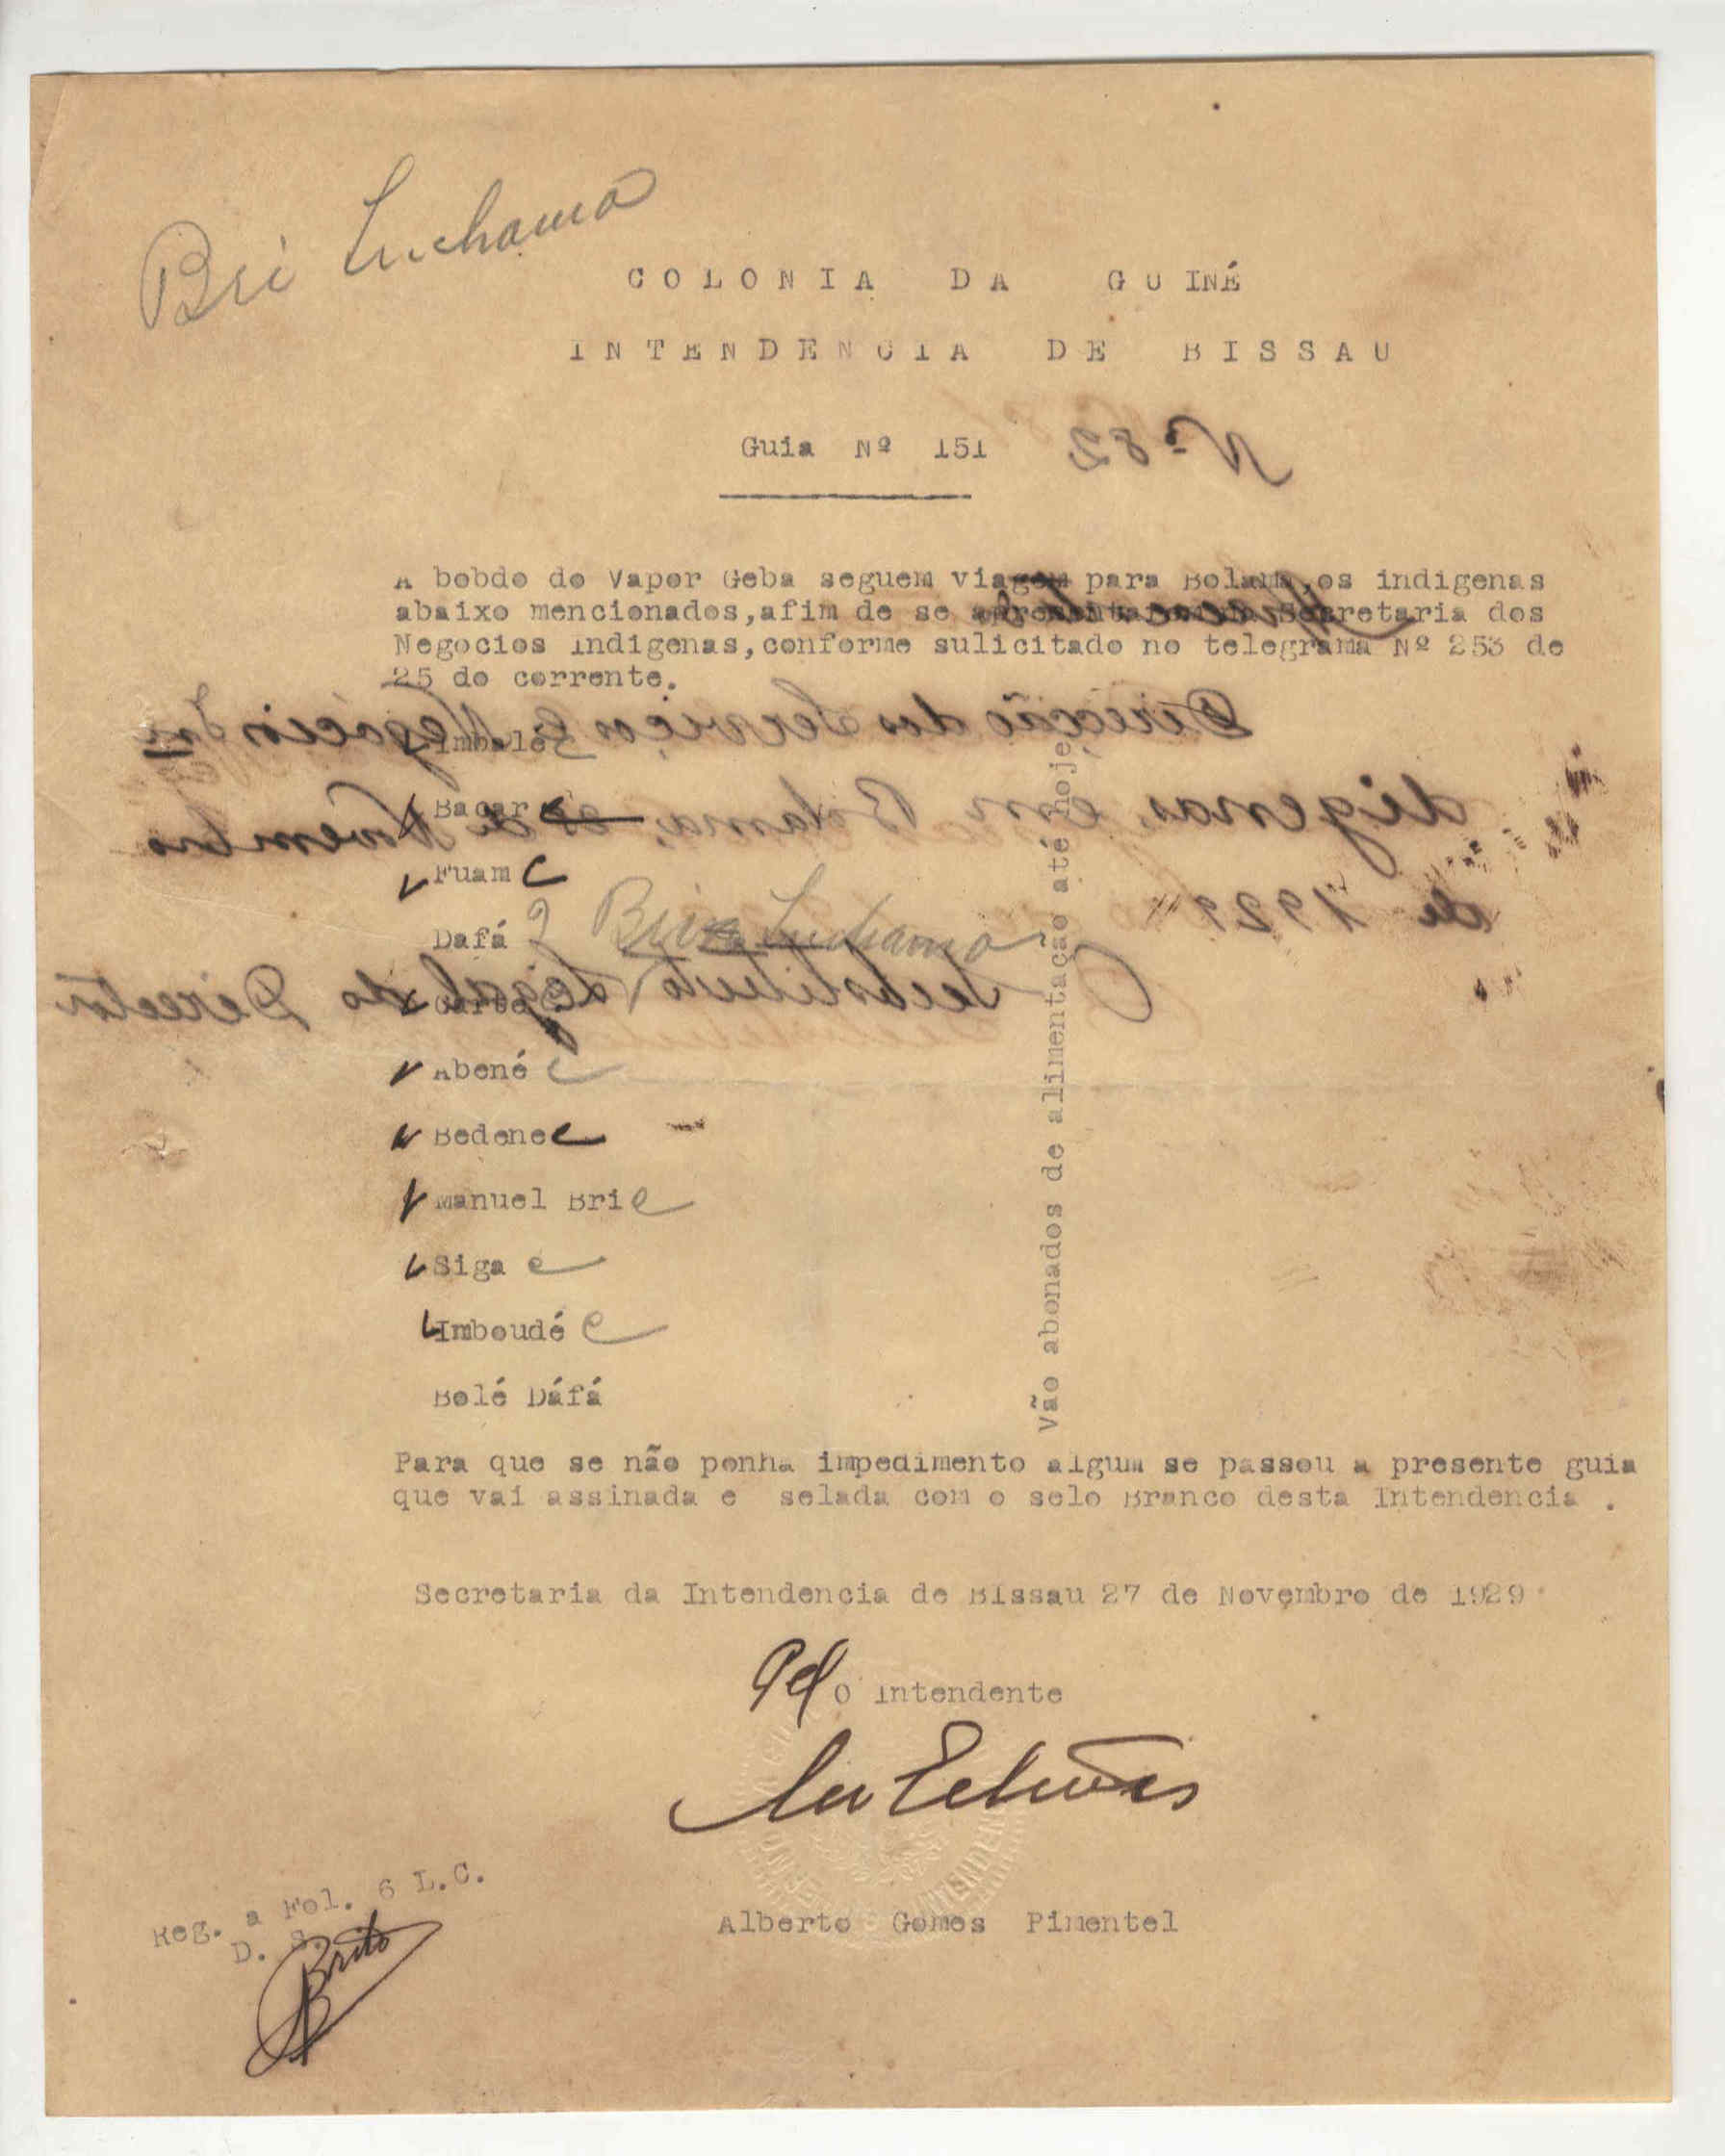 Bri Inchama
COLONIA DA GUINÉ
INTENDENCIA DE BISSAU
Guia Nº 151
Nº 82
A bobdo do Vapor Geba seguem viagem para Bolama, os indigenas
abaixo mencionados, afim de se apresentarem na Secretaria dos
Negocios Indigenas, conforme sulicitado no telegrama Nº 253 de
25 do corrente.
Direcção dos Serviços e Negócios In-
digenas, em Bolama, de Novembro
de 1929
O Substituto Legal do Director
Imbale
Bacar
Fuam C
Dafá 2 Bri Inchama
Abené C
Bedene C
Manuel Bri C
Siga C
Imboudé C
Bolé Dáfá
Vão abonados de alimentação até hoje
Para que se não ponha impedimento algum se passou a presente guia
que vai assinada e selada com o selo Branco desta Intendencia .
Secretaria da Intendencia de Bissau 27 de Novembro de 1929
Pel O Intendente
Alberto Gomes Pimentel
Reg. a Fol. 6 L.C.
D. S.
Brito